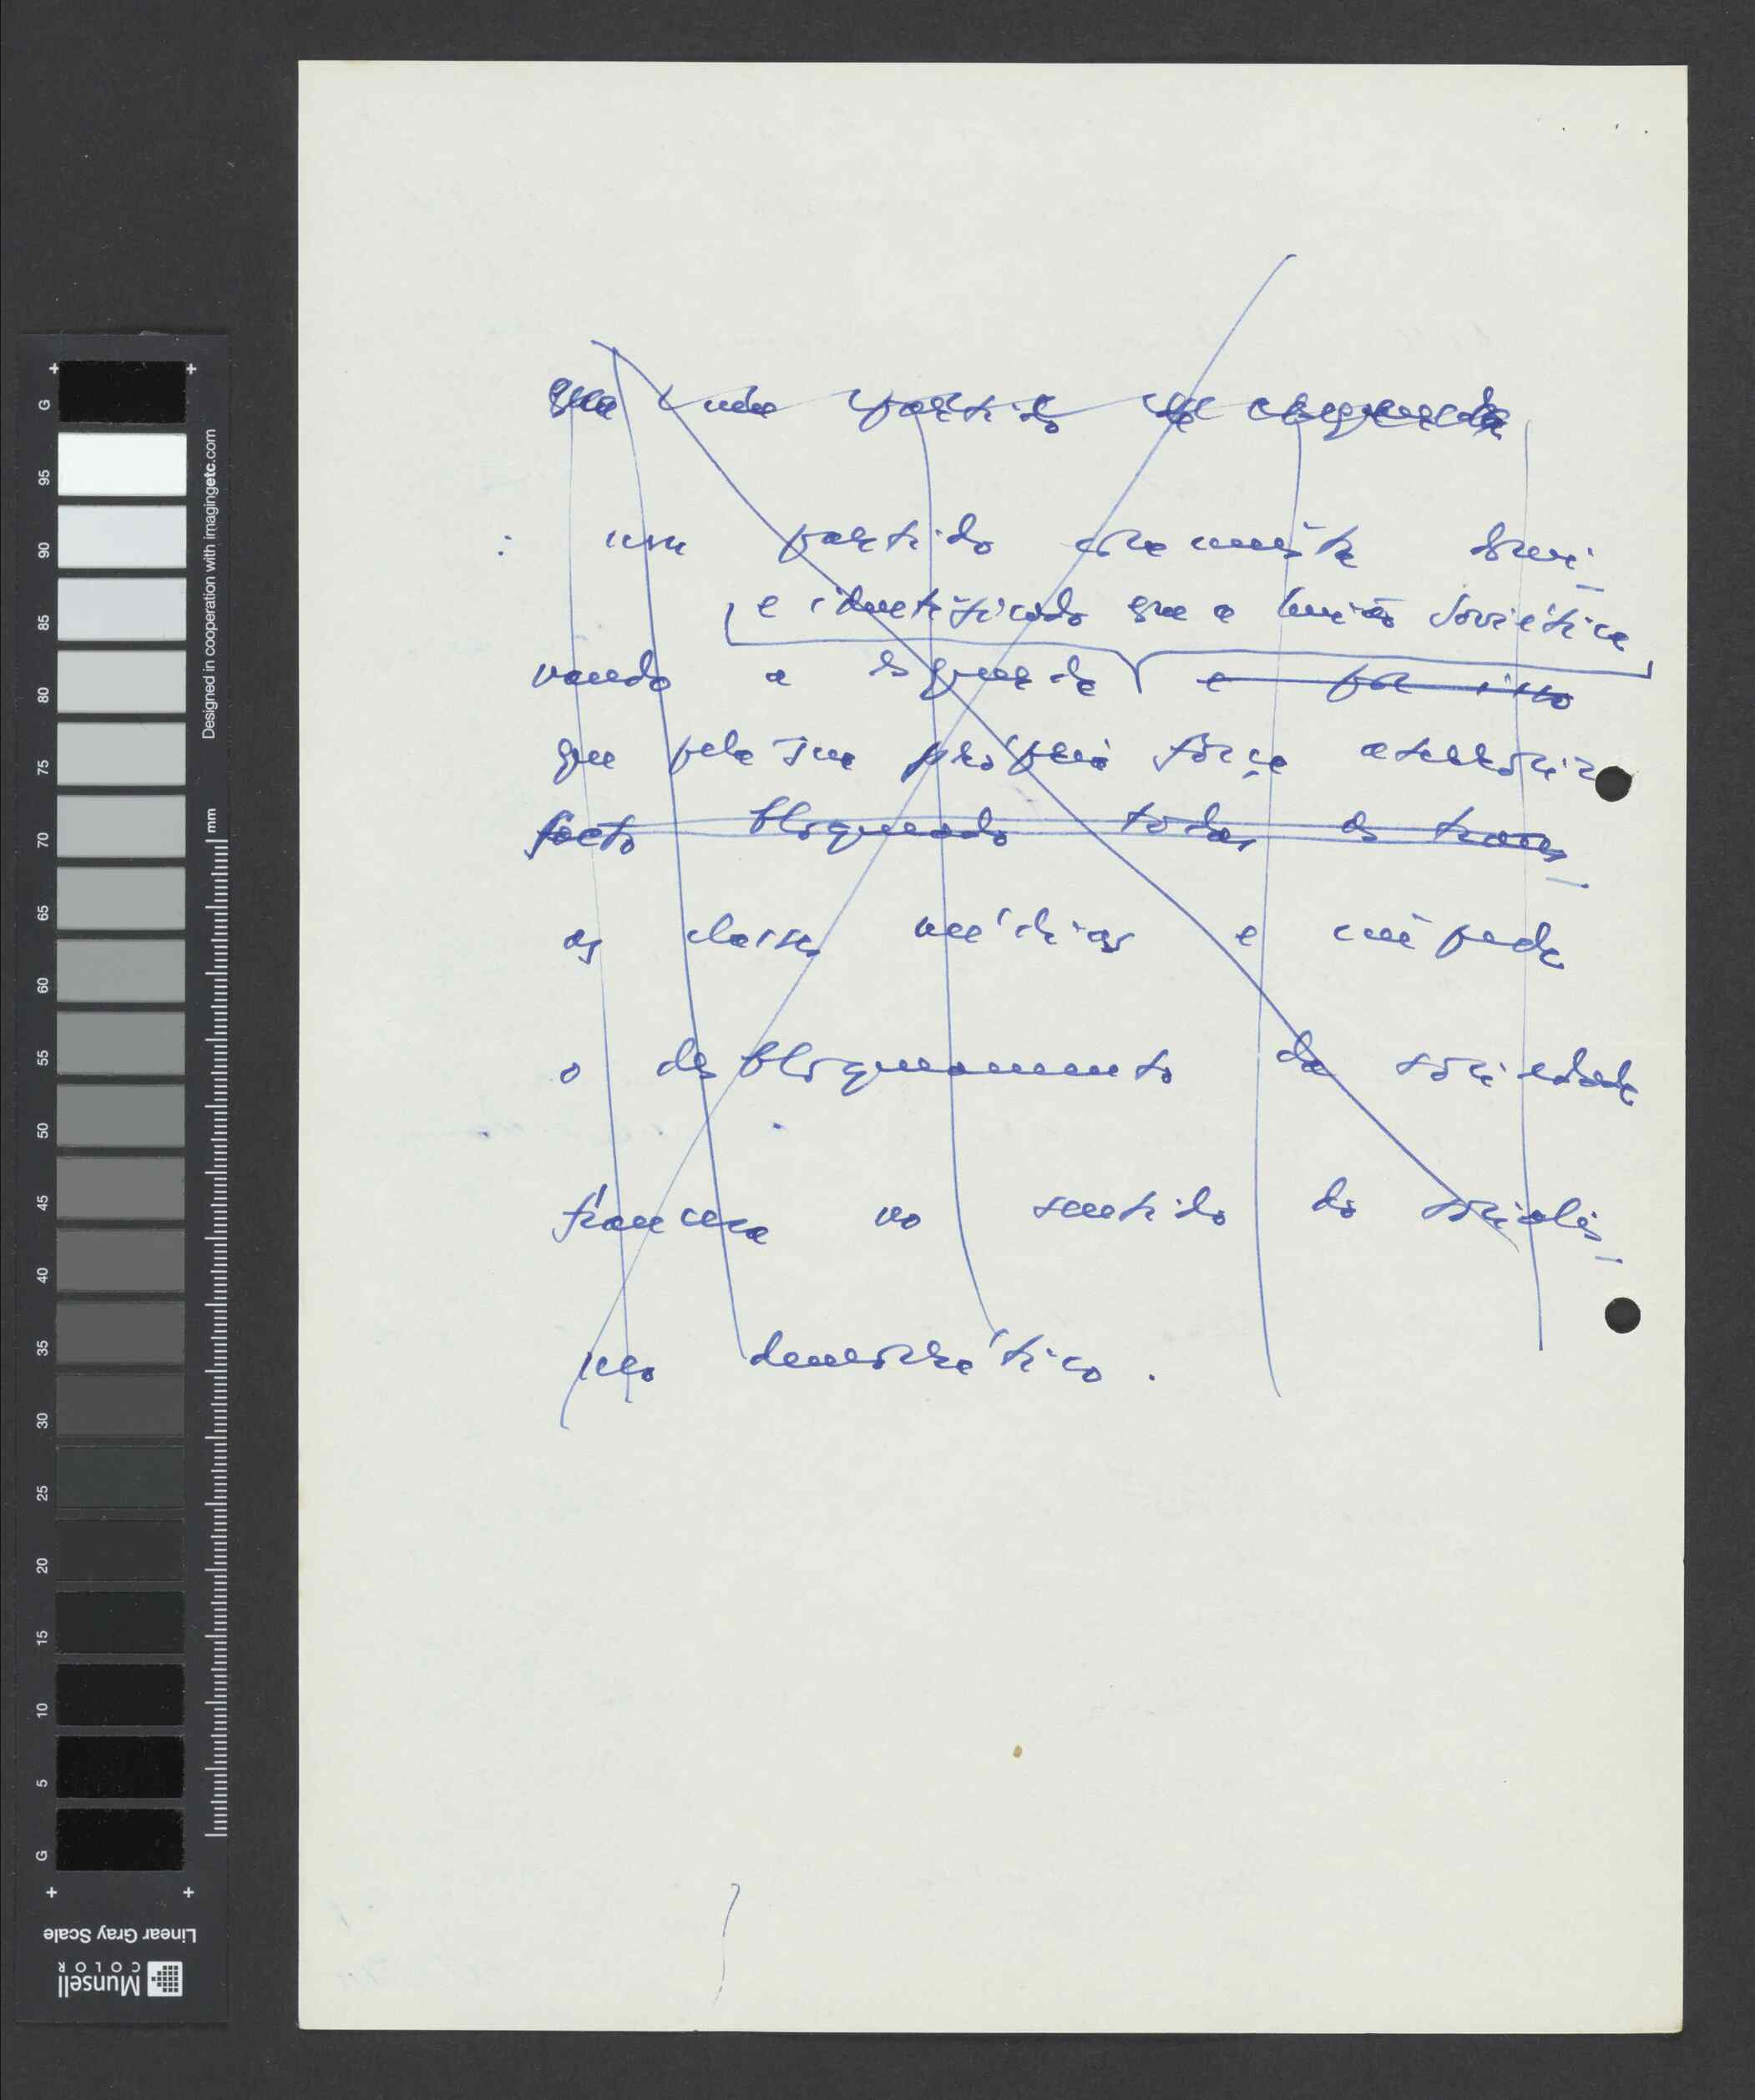 um partido comunista domi-
e identificado que a União Soviética
nando a esquerda e por isso
que pela sua própria força aterroriza
facto bloqueado todas as trans-
as classes médias e impede
o desbloqueamento da sociedade
francesa no sentido do socialis-
mo democrático.
G 95 90 85 80 75 70 65 60 55 50 45 40 35 30 25 20 15 10 5 G
Designed in cooperation with imagingetc.com
mm
Linear Gray Scale
Munsell
COLOR